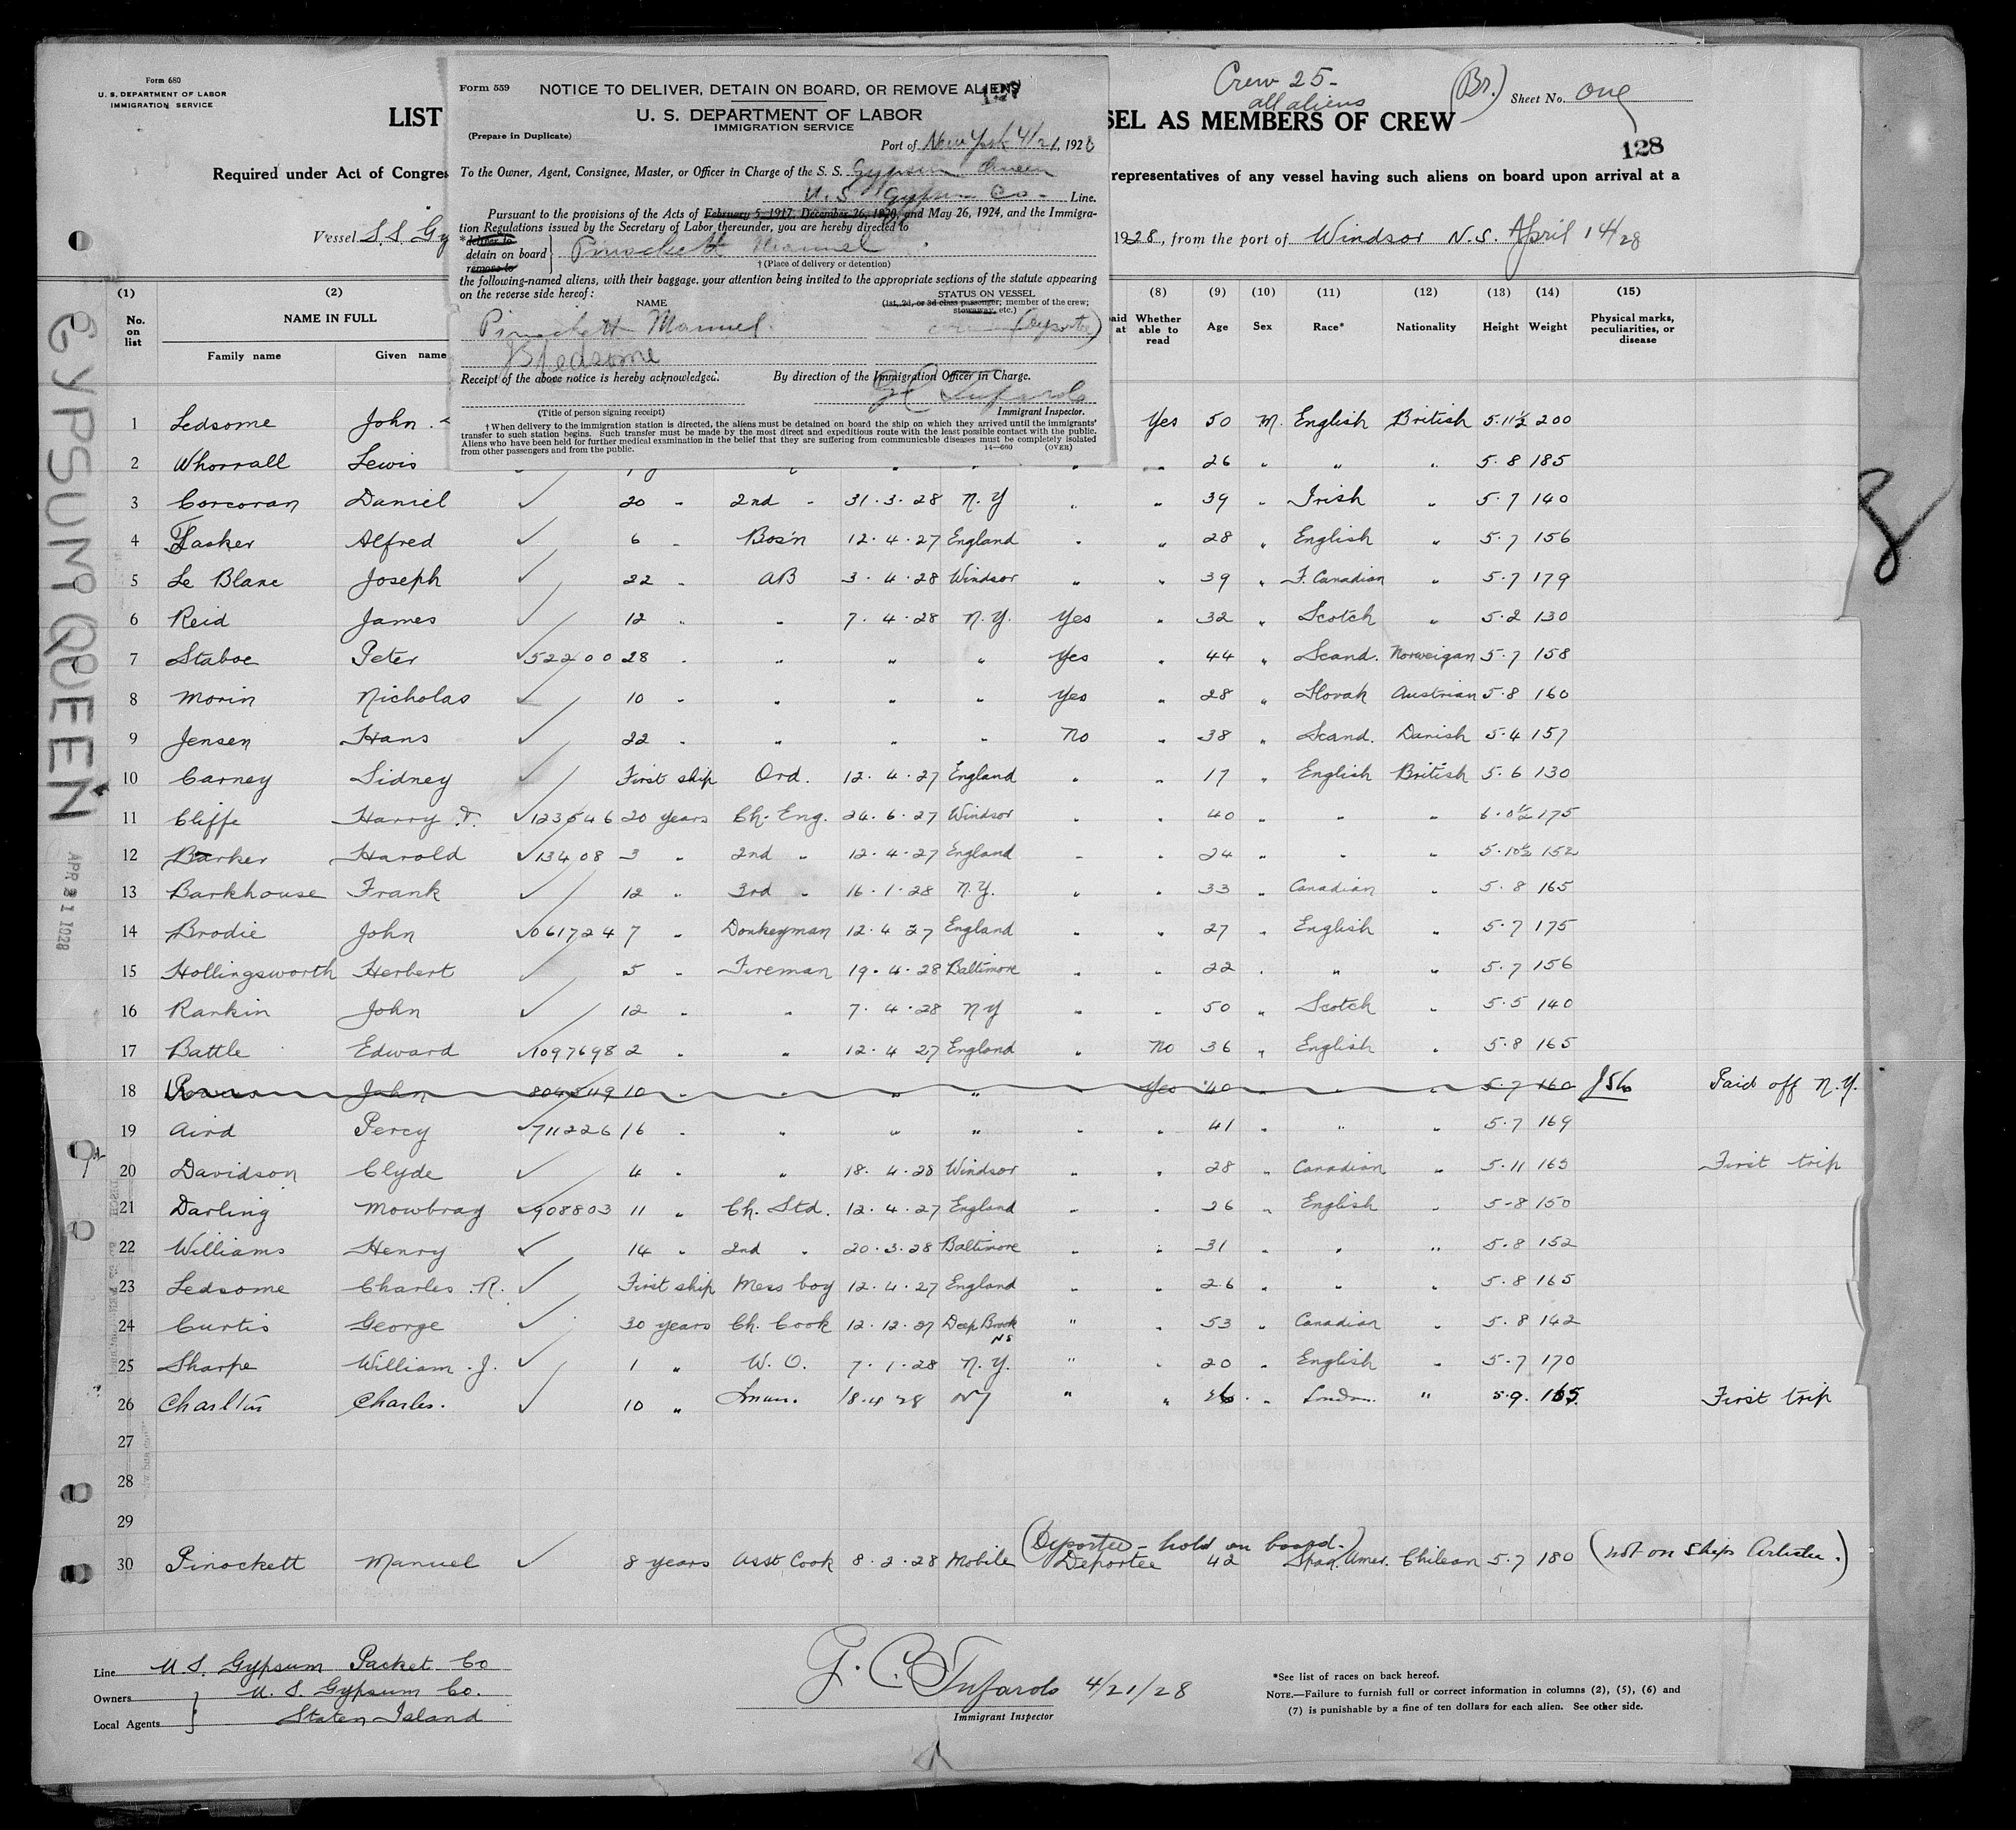 Form 680
U. S. DEPARTMENT OF LABOR
IMMIGRATION SERVICE
LIST
SEL AS MEMBERS OF CREW
Crew 25 -
all aliens
(Br.)
Sheet No. One
128
Required under Act of Congres
representatives of any vessel having such aliens on board upon arrival at a
Vessel S S. Gy
1928, from the port of Windsor N.S. April 14/28
Form 559
NOTICE TO DELIVER, DETAIN ON BOARD, OR REMOVE ALIENS
U. S. DEPARTMENT OF LABOR
IMMIGRATION SERVICE
(Prepare in Duplicate)
Port of New York 4/21, 1928
To the Owner, Agent, Consignee, Master, or Officer in Charge of the S. S. Gypsum Queen
U. S. Gypsum Co - Line.
Pursuant to the provisions of the Acts of February 5, 1917, December 26, 1920, and May 26, 1924, and the Immigra-
tion Regulations issued by the Secretary of Labor thereunder, you are hereby directed to
*deliver to
detain on board
remove to
Pinockett Manuel
†(Place of delivery or detention)
the following-named aliens, with their baggage, your attention being invited to the appropriate sections of the statute appearing
on the reverse side hereof:
NAME
STATUS ON VESSEL
(1st, 2d, or 3d class passenger; member of the crew;
stowaway, etc.)
Pinockett Manuel. (Deportee)
Ledsome
Receipt of the above notice is hereby acknowledged.
By direction of the Immigration Officer in Charge.
G C Tufarolo
(Title of person signing receipt)
Immigrant Inspector.
†When delivery to the immigration station is directed, the aliens must be detained on board the ship on which they arrived until the immigrants'
transfer to such station begins. Such transfer must be made by the most direct and expeditious route with the least possible contact with the public.
Aliens who have been held for further medical examination in the belief that they are suffering from communicable diseases must be completely isolated
from other passengers and from the public.
14—660 (OVER)
(1) (2) (8) (9) (10) (11) (12) (13) (14) (15)
No. on list
NAME IN FULL
Family name Given name
aid at
Whether able to read
Age Sex Race* Nationality Height Weight
Physical marks, peculiarities, or disease
1 Ledsome John. Yes 50 M. English British 5.11½ 200
2 Whorrall Lewis 26 " " " 5.8 185
3 Corcoran Daniel 20 " 2nd " 31.3.28 N.Y " " 39 " Irish " 5.7 140
4 Tasker Alfred 6 " Bos'n 12.4.27 England " " 28 " English " 5.7 156
5 Le Blanc Joseph 22 " AB 3.4.28 Windsor " " 39 " F. Canadian " 5.7 179
6 Reid James 12 " " 7.4.28 N.Y. Yes " 32 " Scotch " 5.2 130
7 Staboe Peter 52200 28 " " " " Yes " 44 " Scand. Norweigan 5.7 158
8 Morin Nicholas 10 " " " " Yes " 28 " Slovak Austrian 5.8 160
9 Jensen Hans 22 " " " " No " 38 " Scand. Danish 5.4 157
10 Carney Sidney First ship Ord. 12.4.27 England " " 17 " English British 5.6 130
11 Cliffe Harry D. 123546 20 years Ch. Eng. 24.6.27 Windsor " " 40 " " " 6.0½ 175
12 Barker Harold 13408 3 " 2nd " 12.4.27 England " " 24 " " " 5.10½ 152
13 Barkhouse Frank 12 " 3rd " 16.1.28 N.Y. " " 33 " Canadian " 5.8 165
14 Brodie John 061724 7 " Donkeyman 12.4.27 England " " 27 " English " 5.7 175
15 Hollingsworth Herbert 5 " Fireman 19.4.28 Baltimore " " 22 " " " 5.7 156
16 Rankin John 12 " " 7.4.28 NY " " 50 " Scotch " 5.5 140
17 Battle Edward 1097698 2 " " 12.4.27 England " No 36 " English " 5.8 165
18 John 10 " " " " " Yes 40 " " " 5.7 160 Paid off N.Y.
19 Aird Percy 711226 16 " " " " " " 41 " " " 5.7 169
20 Davidson Clyde 4 " " 18.4.28 Windsor " " 28 " Canadian " 5.11 165 First trip
21 Darling Mowbray 908803 11 " Ch. Std. 12.4.27 England " " 26 " English " 5-8 150
22 Williams Henry 14 " 2nd " 20.3.28 Baltimore " " 31 " " " 5.8 152
23 Ledsome Charles R. First ship Mess boy 12.4.27 England " " 26 " " " 5.8 165
24 Curtis George 30 years Ch. Cook 12.12.27 Deep Brook NS " " 53 " Canadian " 5.8 142
25 Sharpe William J. 1 " W. O. 7.1.28 N.Y. " " 20 " English " 5.7 170
26 Charlton Charles. 10 " 18.4.28 NY " " 26 " London " 5.9. 165 First trip
27
28
29
(Deported - hold on board.)
30 Pinockett Manuel 8 years Asst Cook 8.2.28 Mobile Deportee 42 Span. Amer. Chilean 5.7 180 (not on Ships Articles.)
GYPSUM QUEEN
APR 21 1928
Line U. S. Gypsum Packet Co
Owners U. S. Gypsum Co.
Local Agents Staten Island
G. C. Tufarolo 4/21/28
Immigrant Inspector
*See list of races on back hereof.
NOTE.—Failure to furnish full or correct information in columns (2), (5), (6) and
(7) is punishable by a fine of ten dollars for each alien. See other side.